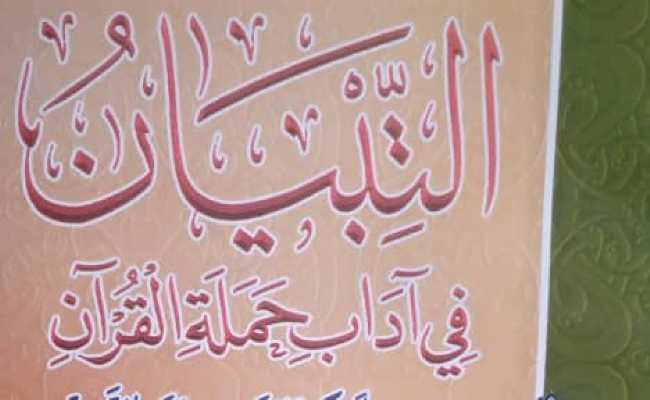 التِّبْيَانُ
فِي آدَابِ حَمَلَةِ الْقُرْآنِ